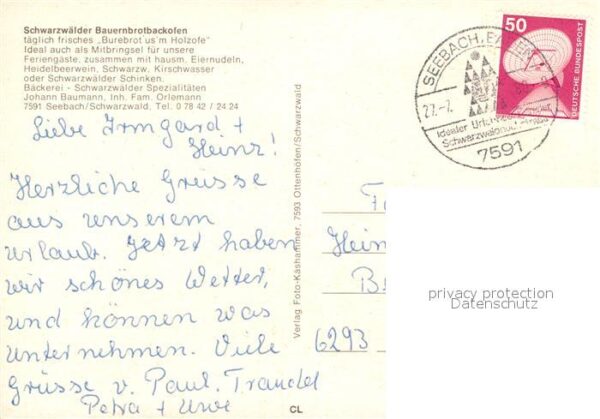 Schwarzwälder Bauernbrotbackofen
täglich frisches „Burebrot us'm Holzofe"
Ideal auch als Mitbringsel für unsere
Feriengäste, zusammen mit hausm. Eiernudeln,
Heidelbeerwein, Schwarzw. Kirschwasser
oder Schwarzwälder Schinken.
Bäckerei - Schwarzwälder Spezialitäten
Johann Baumann, Inh. Fam. Orlemann
7591 Seebach/Schwarzwald, Tel. 0 78 42 / 24 24
Liebe Irmgard +
Heinz!
Herzliche Grüsse
aus unserem
Urlaub. Jetzt haben
wir schönes Wetter,
und können was
unternehmen. Viele
Grüsse v. Paul. Traudel
Petra + Uwe
Verlag Foto-Käshammer, 7593 Ottenhöfen/Schwarzwald
CL
SEEBACH
Idealer
7591
50
DEUTSCHE BUNDESPOST
6293
privacy protection
Datenschutz